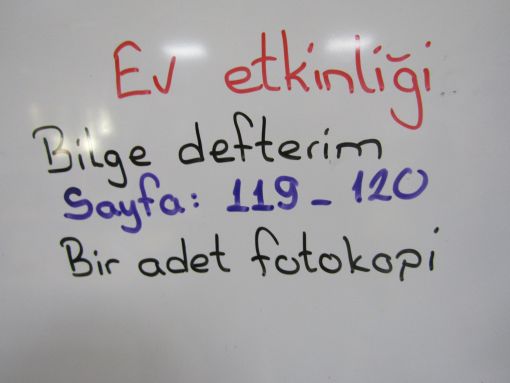 Ev etkinliği
Bilge defterim
Sayfa: 119 - 120
Bir adet fotokopi